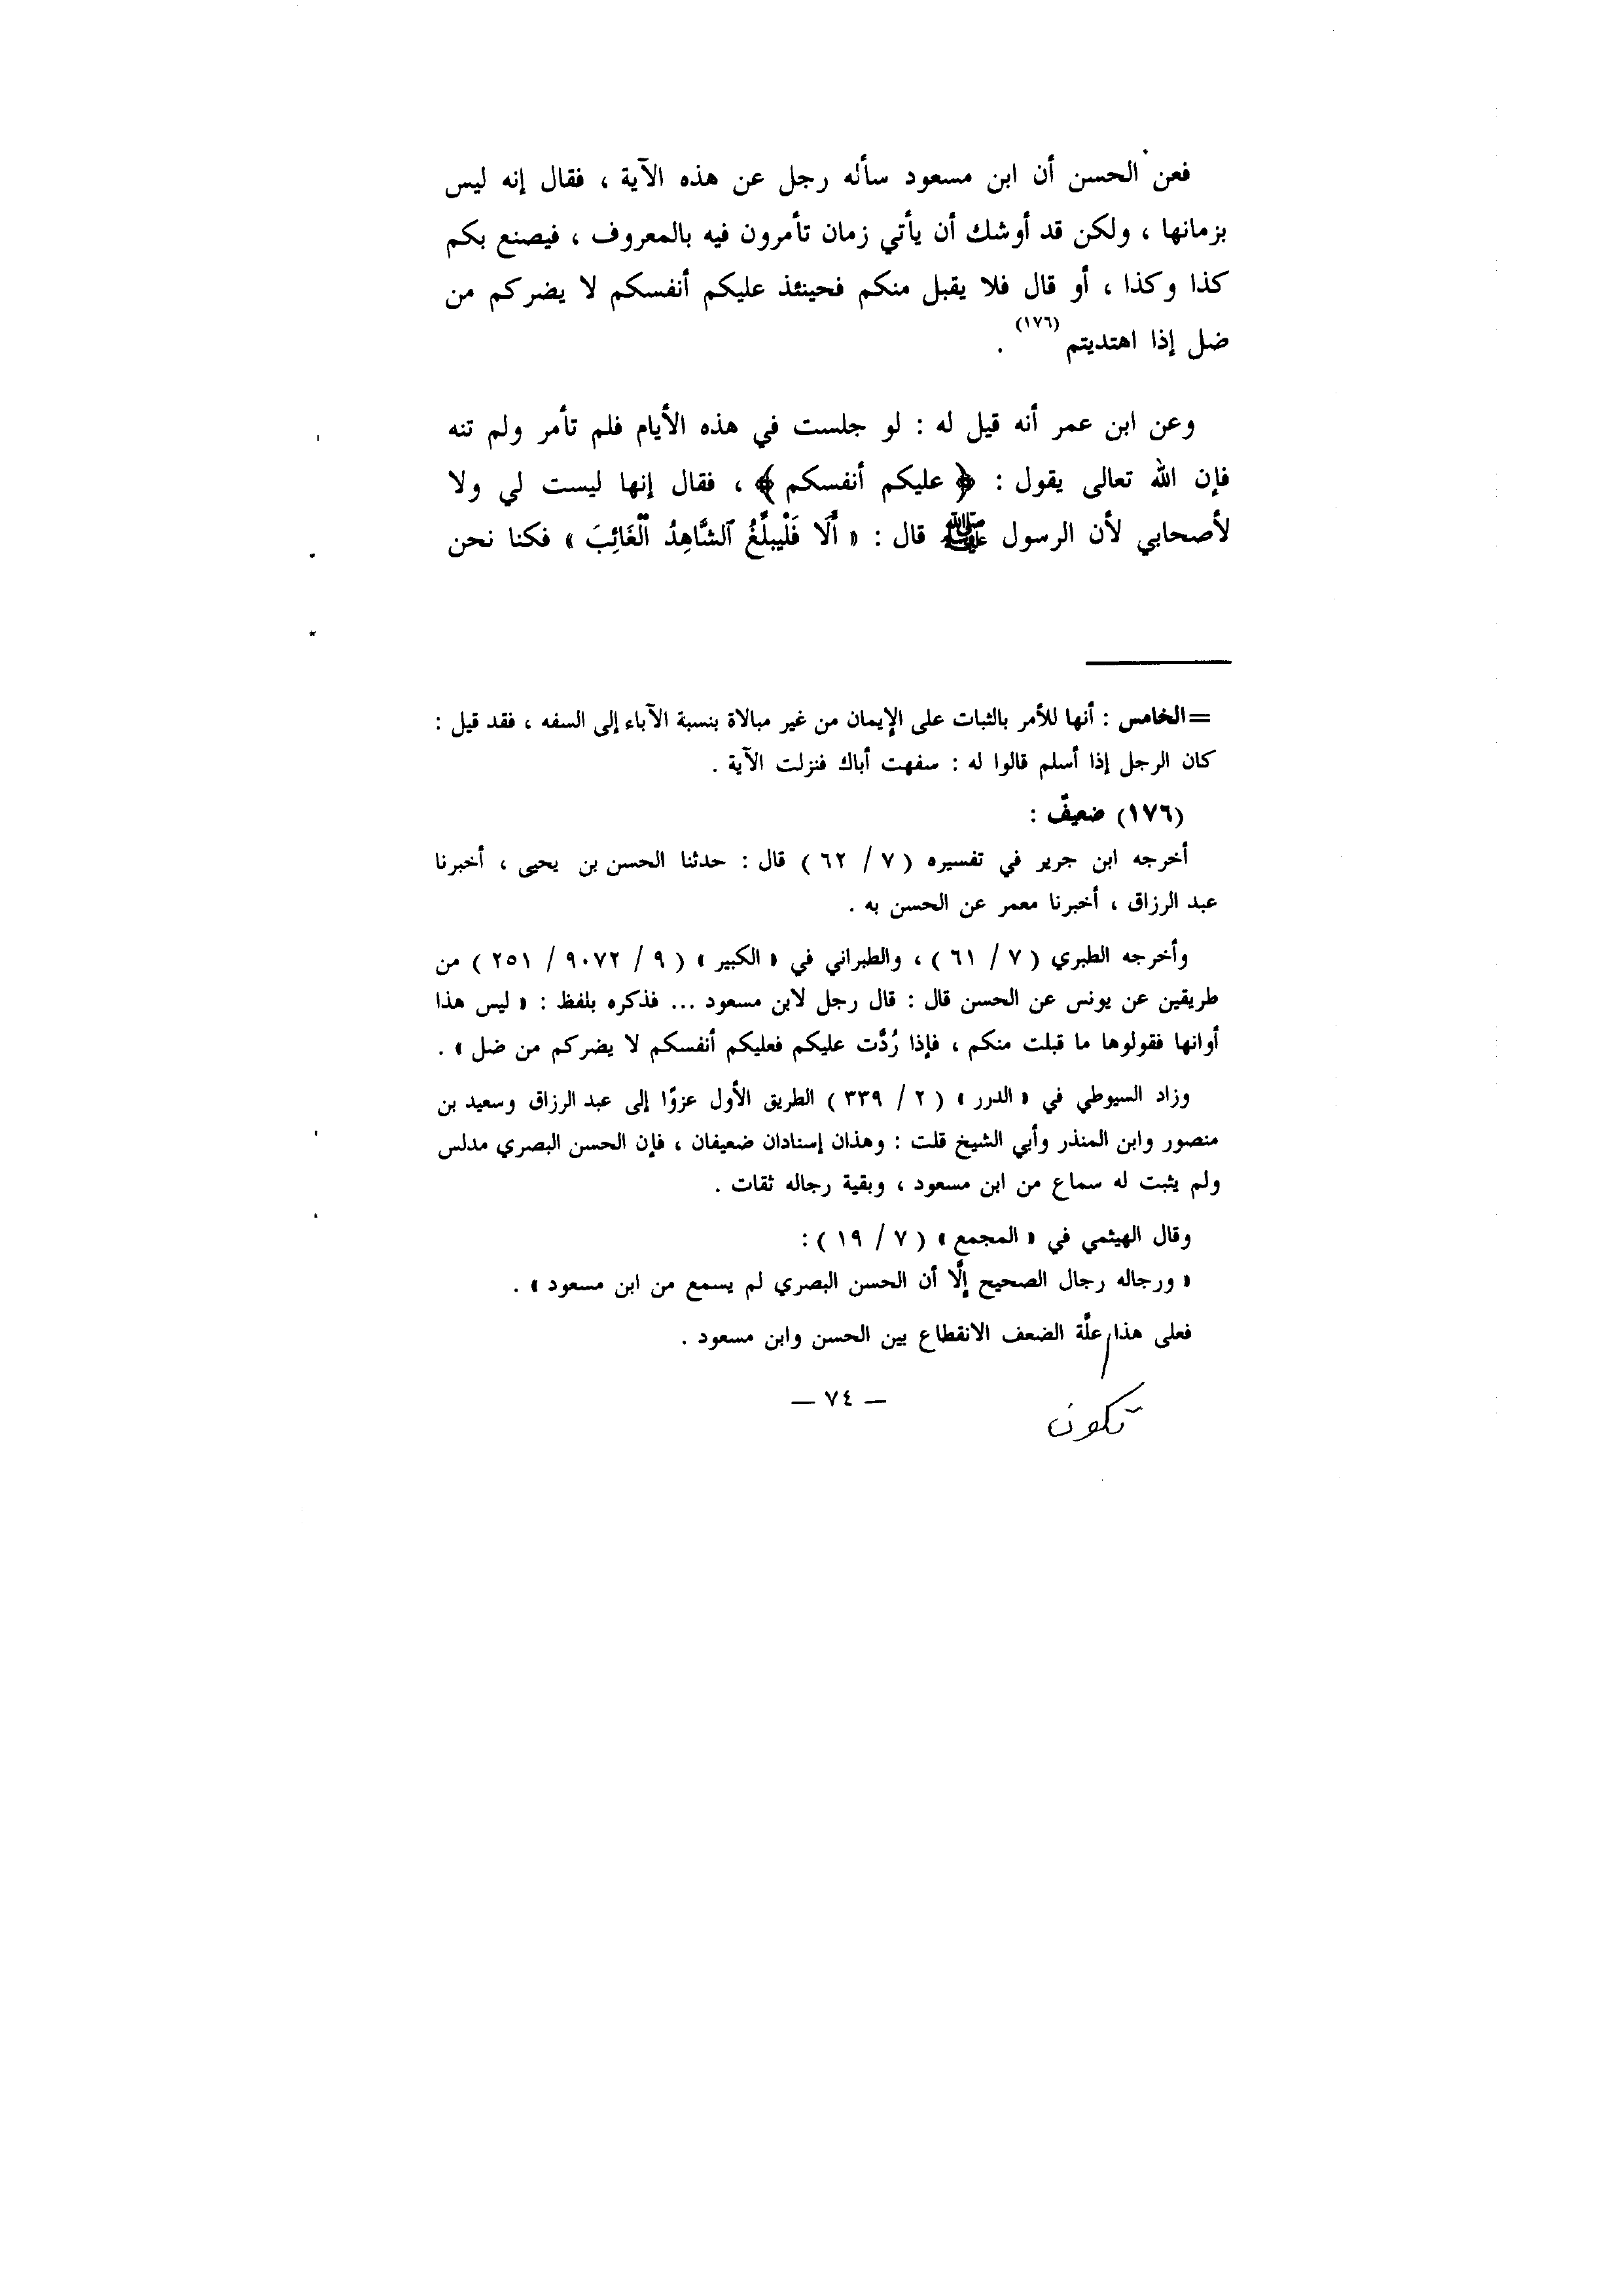 فعن الحسن أن ابن مسعود سأله رجل عن هذه الآية ، فقال إنه ليس
بزمانها ، ولكن قد أوشك أن يأتي زمان تأمرون فيه بالمعروف ، فيصنع بكم
كذا وكذا ، أو قال فلا يقبل منكم فحينئذ عليكم أنفسكم لا يضركم من
ضل إذا اهتديتم (١٧٦) .
وعن ابن عمر أنه قيل له : لو جلست في هذه الأيام فلم تأمر ولم تنه
فإن الله تعالى يقول : ﴿ عليكم أنفسكم ﴾ ، فقال إنها ليست لي ولا
لأصحابي لأن الرسول ﷺ قال : « أَلَا فَلْيبلِّغُ ٱلشَّاهِدُ ٱلْغَائِبَ » فكنا نحن
= الخامس : أنها للأمر بالثبات على الإيمان من غير مبالاة بنسبة الآباء إلى السفه ، فقد قيل :
كان الرجل إذا أسلم قالوا له : سفهت أباك فنزلت الآية .
(١٧٦) ضعيفٌ :
أخرجه ابن جرير في تفسيره ( ٧ / ٦٢ ) قال : حدثنا الحسن بن يحيى ، أخبرنا
عبد الرزاق ، أخبرنا معمر عن الحسن به .
وأخرجه الطبري ( ٧ / ٦١ ) ، والطبراني في « الكبير » ( ٩ / ٩٠٧٢ / ٢٥١ ) من
طريقين عن يونس عن الحسن قال : قال رجل لابن مسعود ... فذكره بلفظ : « ليس هذا
أوانها فقولوها ما قبلت منكم ، فإذا رُدَّت عليكم فعليكم أنفسكم لا يضركم من ضل » .
وزاد السيوطي في « الدرر » ( ٢ / ٣٣٩ ) الطريق الأول عزوًا إلى عبد الرزاق وسعيد بن
منصور وابن المنذر وأبي الشيخ قلت : وهذان إسنادان ضعيفان ، فإن الحسن البصري مدلس
ولم يثبت له سماع من ابن مسعود ، وبقية رجاله ثقات .
وقال الهيثمي في « المجمع » ( ٧ / ١٩ ) :
« ورجاله رجال الصحيح إلَّا أن الحسن البصري لم يسمع من ابن مسعود » .
فعلى هذا علَّة الضعف الانقطاع بين الحسن وابن مسعود .
— ٧٤ —
تكون